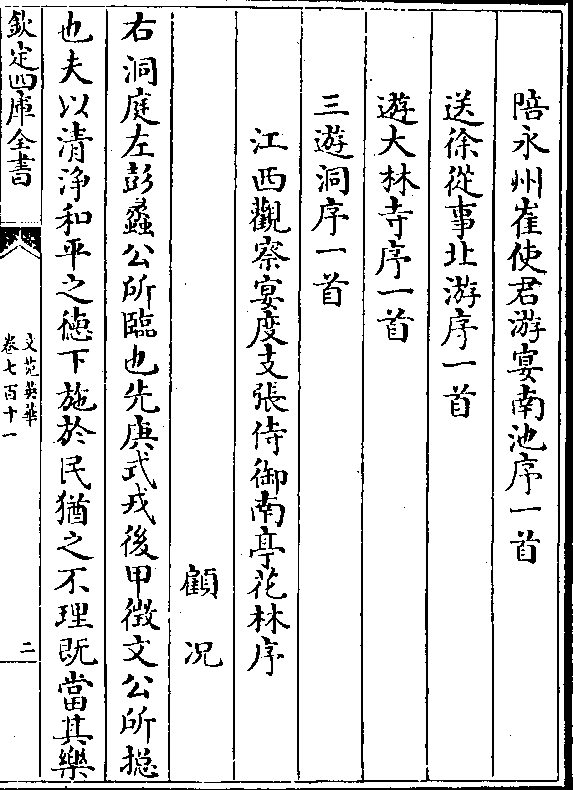 陪永州崔使君游宴南池序一首
送徐從事北游序一首
遊大林寺序一首
三遊洞序一首
江西觀察宴度支張侍御南亭花林序
顧況
右洞庭左彭蠡公所臨也先庚式戎後甲徴文公所摠
也夫以清浄和平之徳下施於民猶之不理既當其樂
欽定四庫全書
文苑英華
卷七百十一
二